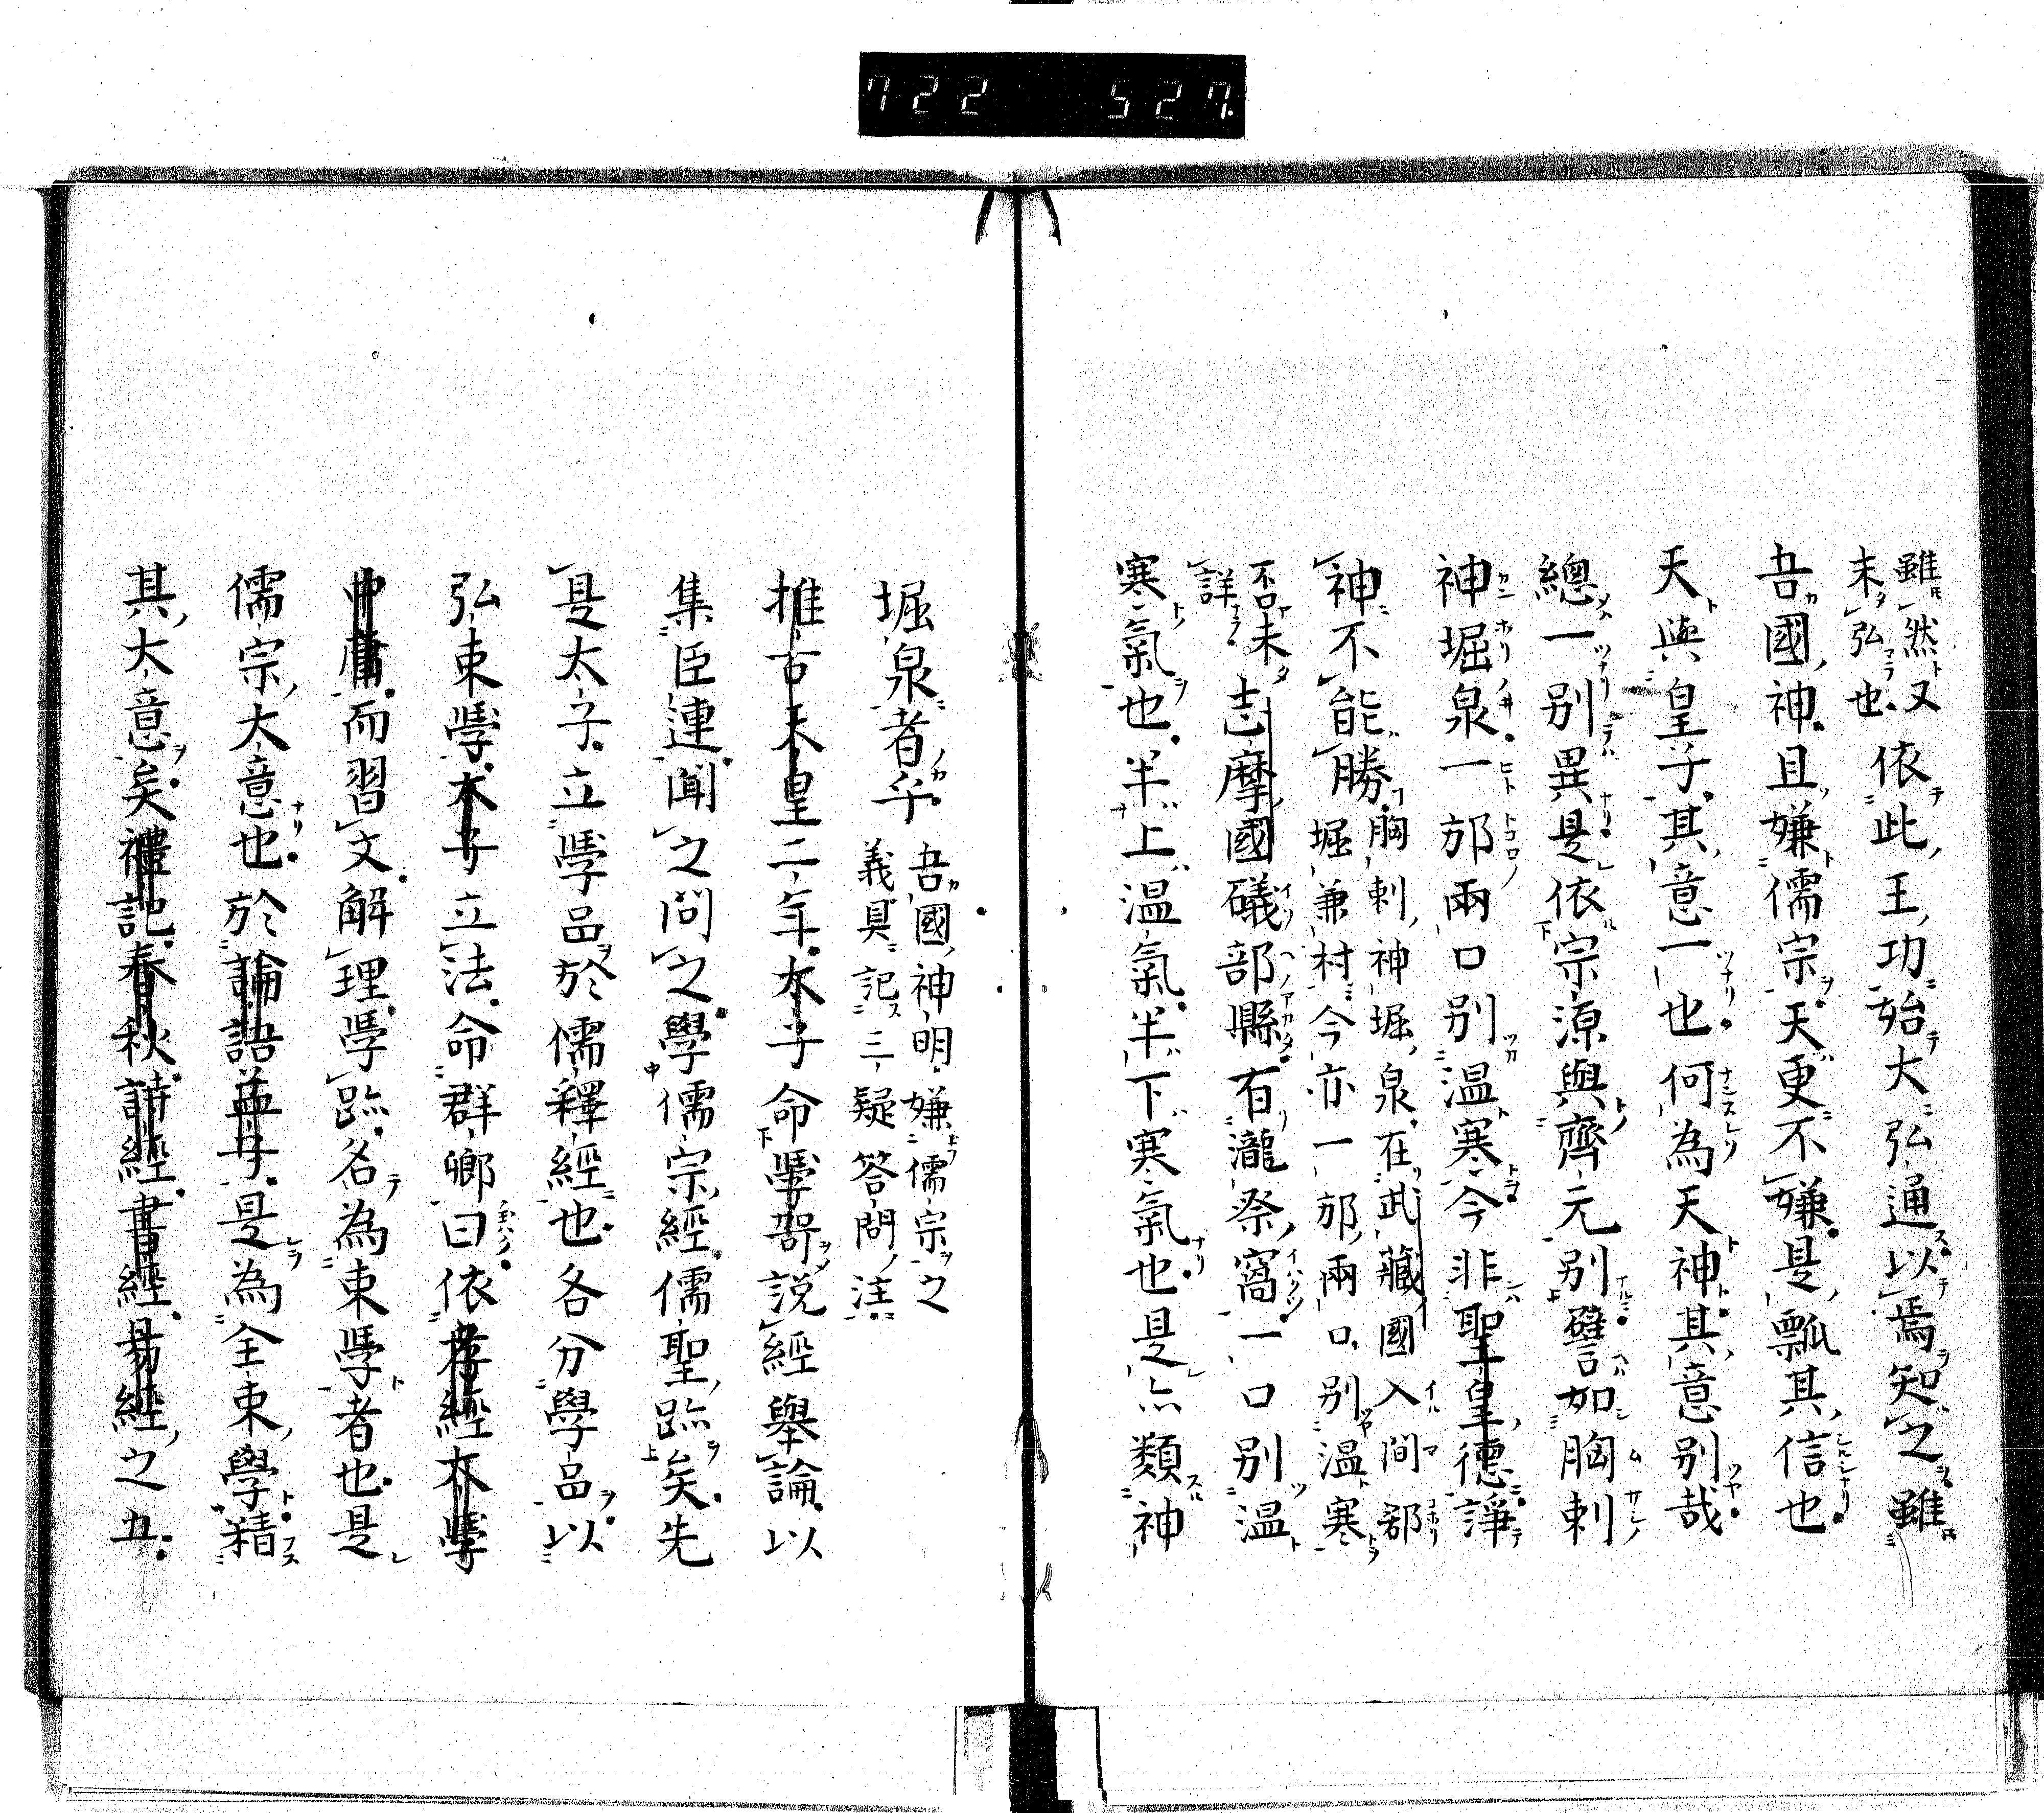 722 527.
雖然又
未弘也
依此王功始大弘通以焉知之雖
吾國神且嫌儒宗天更不嫌是瓢其信也
天與皇子其意一也何為天神其意別哉
總一別異是依宗源與齊元別譬如胸刺
神堀泉一邡兩口別温寒今非聖皇德諍
神不能勝
胸刺神堀泉在武藏國入間郡
堀兼村今亦一邡兩口別温寒
否未
詳
志摩國礒部縣有瀧祭窩一口別温
寒氣也半上温氣半下寒氣也是亦類神
堀泉者乎
吾國神明嫌儒宗之
義具記三疑答問註
推古天皇二年太子命學哿説經舉論以
集臣連聞之問之學儒宗經儒聖跡矣先
是太子立學品於儒釋經也各分學品以
弘束學太子立法命群卿曰依孝經大學
中庸而習文解理學跡名為束學者也是
儒宗大意也於論語孟子是為全束學精
其大意矣禮記春秋詩經書經易經之五